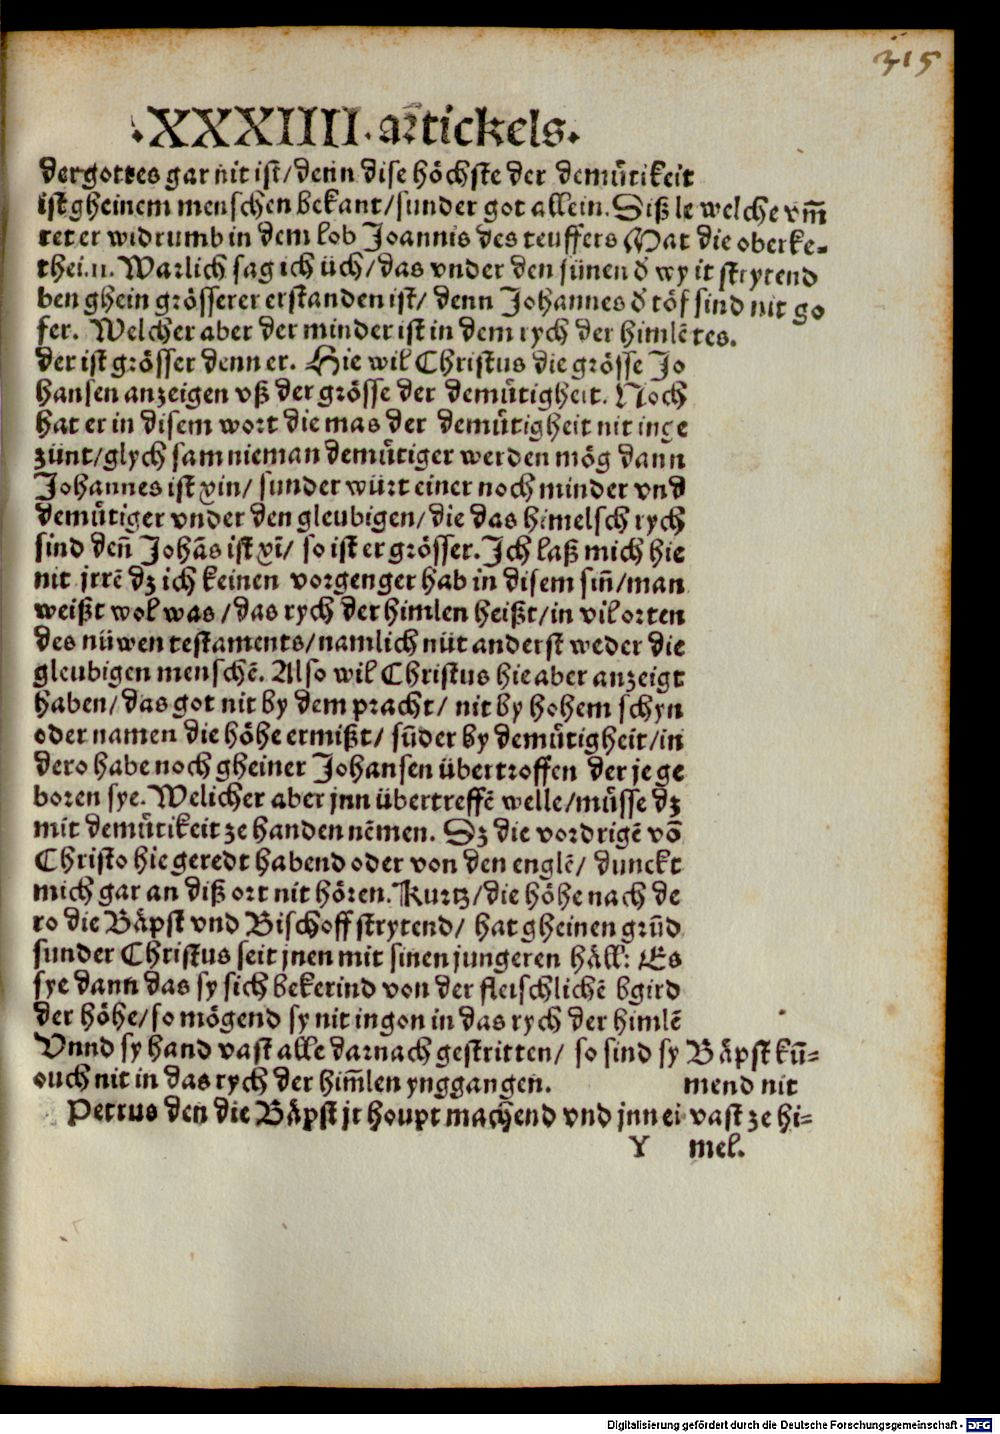 315
·XXXIIII· artickels.
der gottes gar nit ist/denn dise höchste der demuͤtikeit
ist gheinem menschen bekant/sunder got allein. Diß le
ret er widrumb in dem lob Joannis des teuffers Mat
thei.11. Warlich sag ich üch/das vnder den sünen ď wy
ben ghein grösserer erstanden ist/ denn Johannes ď töf
fer. Welcher aber der minder ist in dem rych der himlē
der ist grösser denn er. Hie wil Christus die grösse Jo
hansen anzeigen vß der grösse der demuͤtigheit. Noch
hat er in disem wort die mas der demuͤtigheit nit inge
zünt/glych sam nieman demuͤtiger werden mög dann
Johannes ist xin/ sunder würt einer noch minder vnd
demuͤtiger vnder den gleubigen/die das himelsch rych
sind den̄ Johās ist xī/ so ist er grösser. Ich laß mich hie
nit jrrē dz ich keinen vorgenger hab in disem sin̄/man
weißt wol was /das rych der himlen heißt/in vil orten
des nüwen testaments/namlich nüt anderst weder die
gleubigen menschē. Also wil Christus hie aber anzeigt
haben/das got nit by dem pracht/ nit by hohem schyn
oder namen die höhe ermißt/ sūder by demuͤtigheit/in
dero habe noch gheiner Johansen übertroffen der je ge
boren sye. Welicher aber jnn übertreffē welle/muͤsse dz
mit demuͤtikeit ze handen nēmen. Dz die vordrigē vō
Christo hie geredt habend oder von den englē/ dunckt
mich gar an diß ort nit hören. Kurtz/die höhe nach de
ro die Bäpst vnd Bischoff strytend/ hat gheinen grūd
sunder Christus seit jnen mit sinen jungeren häll: Es
sye dann das sy sich bekerind von der fleischlichē bgird
der höhe/so mögend sy nit ingon in das rych der himlē
Vnnd sy hand vast alle darnach gestritten/ so sind sy
ouch nit in das rych der him̄len ynggangen.
Petrus den die Bäpst jr houpt machend vnd jnn ei
Y
welche vm̄
die oberke-
it strytend
sind nit go
tes.
Bäpst kū-
mend nit
vast ze hi-
mel.
Digitalisierung gefördert durch die Deutsche Forschungsgemeinschaft - DFG